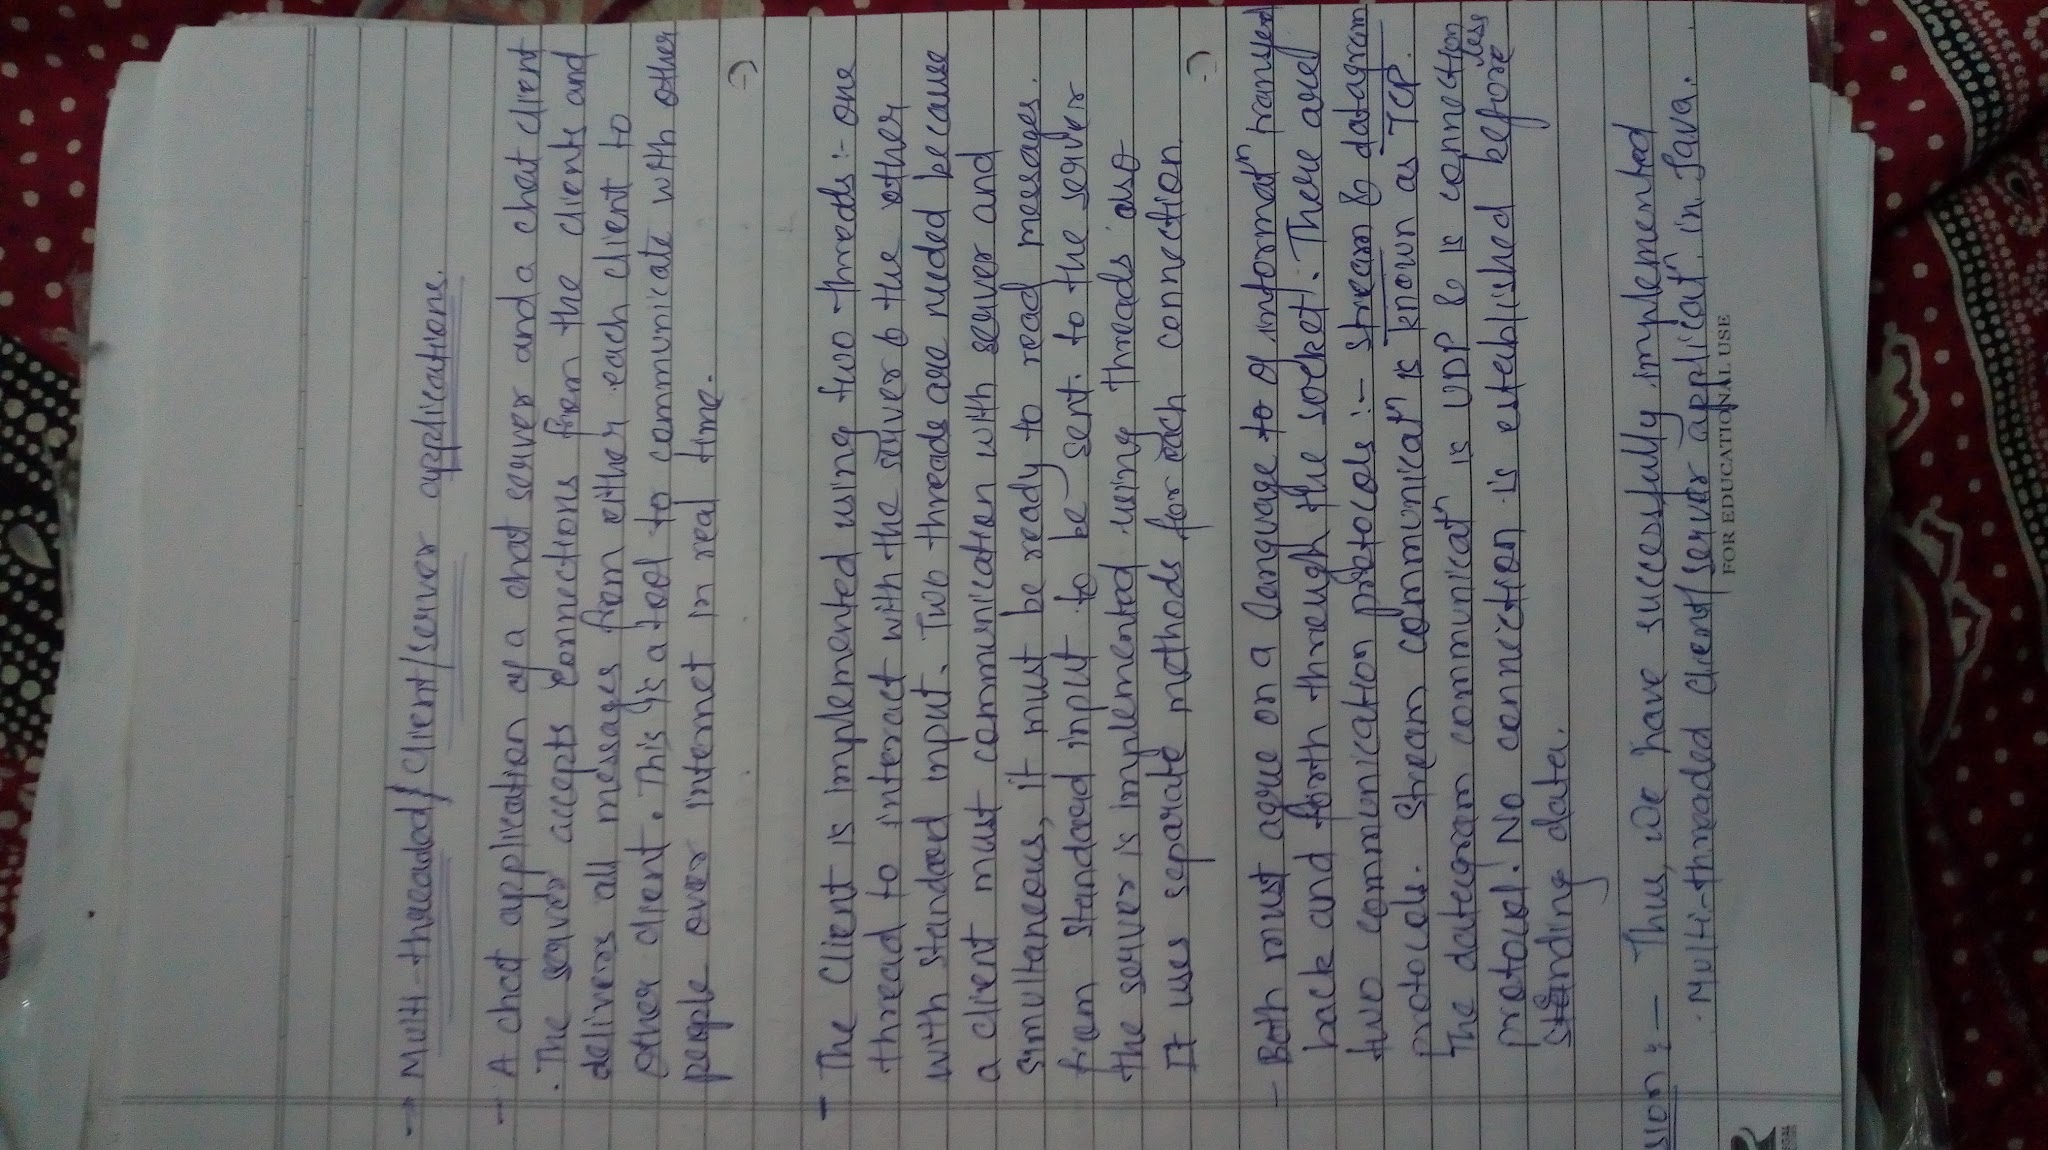 → Multi-threaded/client/server applications.
- A chat application of a chat server and a chat client
. The server accepts connections from the clients and
delivers all messages from either each client to
other client. This is a tool to communicate with other
people over internet in real time.
- The Client is implemented using two threads:- one
thread to interact with the server & the other
with standard input. Two threads are needed because
a client must communication with server and
simultaneous, it must be ready to read messages.
from standard input to be sent. to the server
the server is implemented using threads also
It uses separate methods for each connection
- Both must agree on a language to of informatⁿ transfered
back and forth through the socket. There are
two communication protocols :- stream & datagram
protocols. Stream communicatⁿ is known as TCP.
The datagram communicatⁿ is UDP & is connection less
protocol. No connection is established before
sending data.
sion :- Thus, we have successfully implemented
Multi-threaded client/server applicatⁿ in Java.
FOR EDUCATIONAL USE